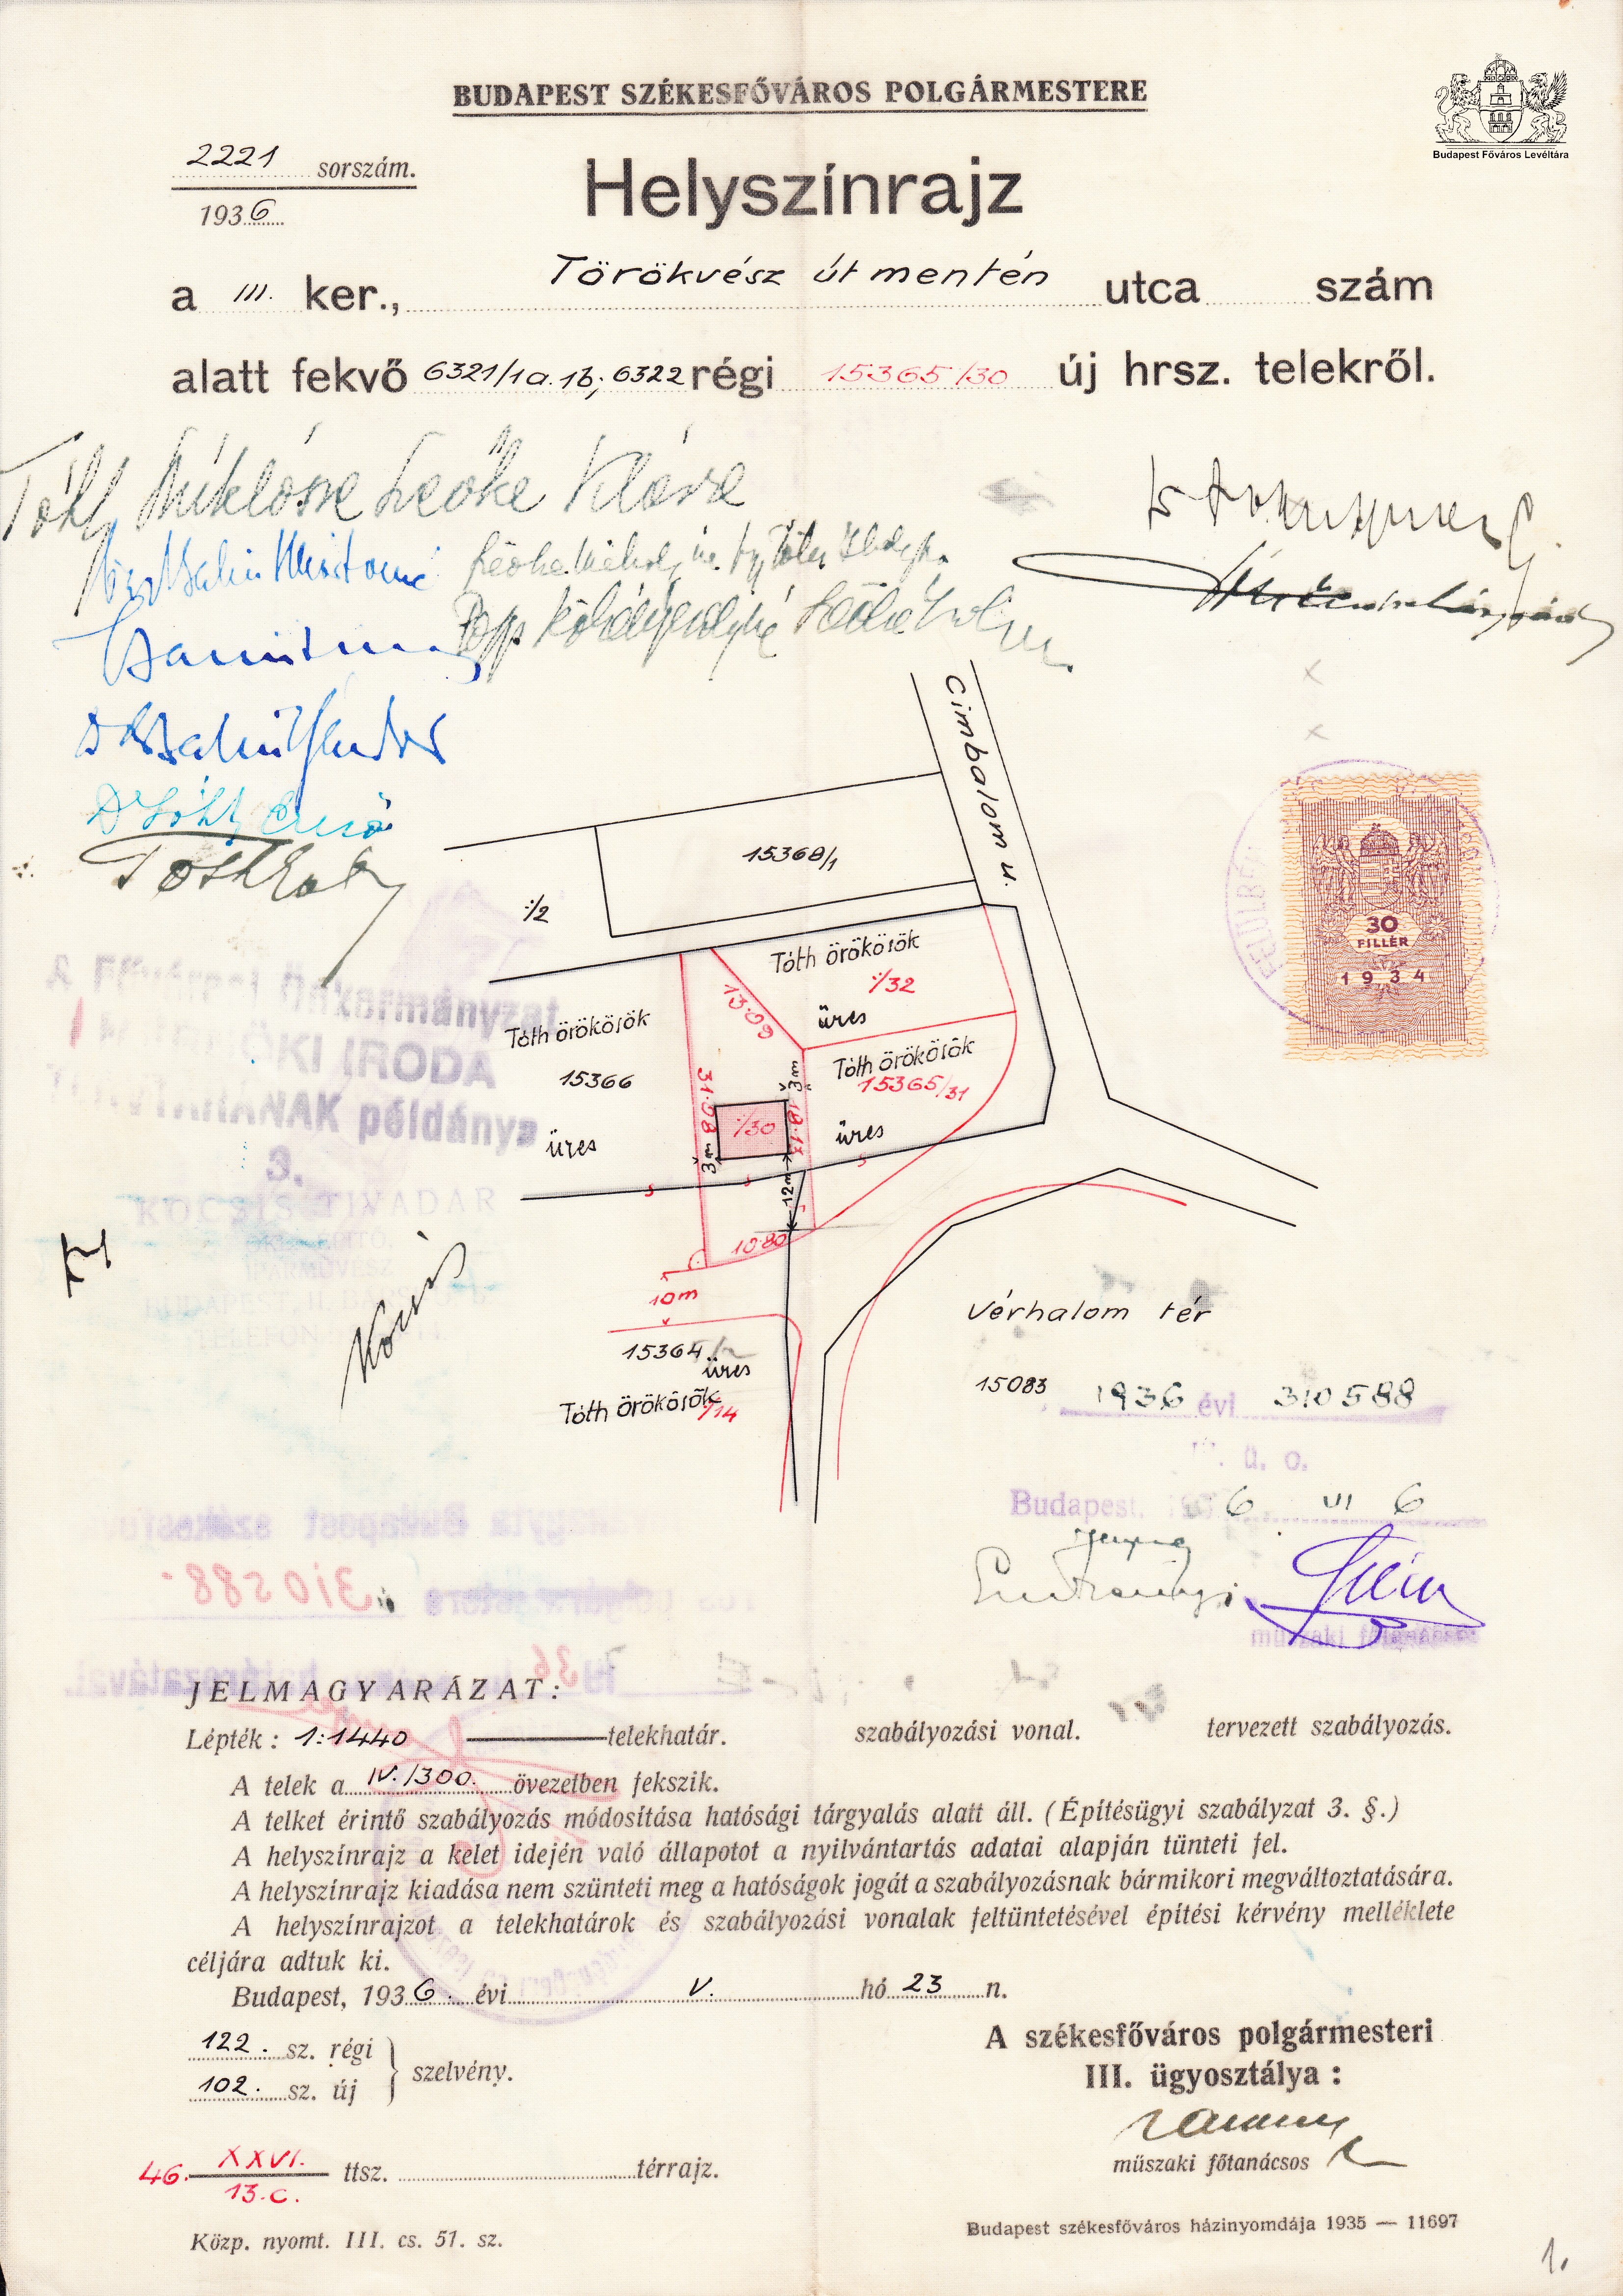 BUDAPEST SZÉKESFŐVÁROS POLGÁRMESTERE
Budapest Főváros Levéltára
2221 sorszám.
1936
Helyszínrajz
a III. ker., Törökvész út mentén utca szám
alatt fekvő 6321/1a.1b; 6322 régi 15365/30 új hrsz. telekről.
Tóth Miklósné Leőke Klára
Cimbalom u.
15368/1
·/2
Tóth örökösök
·/32
üres
13·09
Tóth örökösök
15366
üres
Tóth örökösök
15365/31
üres
31·08
3m
·/30
18·13
3m
12m
10·80
10m
15364
üres
Tóth örökösök
·/14
Vérhalom tér
15083
30
FILLÉR
1934
A Fővárosi Önkormányzat
MÉRNÖKI IRODA
TERVTÁRÁNAK példánya
3.
KOCSIS TIVADAR
BUDAPEST, II.
TELEFON
Kocsis
1936 évi 310588
ü. o.
Budapest, 1936 VI 6
műszaki főtanácsos
310588.
JELMAGYARÁZAT:
Lépték : 1:1440 telekhatár. szabályozási vonal. tervezett szabályozás.
A telek a IV./300. övezetben fekszik.
A telket érintő szabályozás módosítása hatósági tárgyalás alatt áll. (Építésügyi szabályzat 3. §.)
A helyszínrajz a kelet idején való állapotot a nyilvántartás adatai alapján tünteti fel.
A helyszínrajz kiadása nem szünteti meg a hatóságok jogát a szabályozásnak bármikori megváltoztatására.
A helyszínrajzot a telekhatárok és szabályozási vonalak feltüntetésével építési kérvény melléklete
céljára adtuk ki.
Budapest, 1936. évi V. hó 23 n.
122. sz. régi
102. sz. új
szelvény.
A székesfőváros polgármesteri
III. ügyosztálya :
műszaki főtanácsos
46. XXVI. ttsz. térrajz.
13.c.
Közp. nyomt. III. cs. 51. sz.
Budapest székesfőváros házinyomdája 1935 — 11697
1.